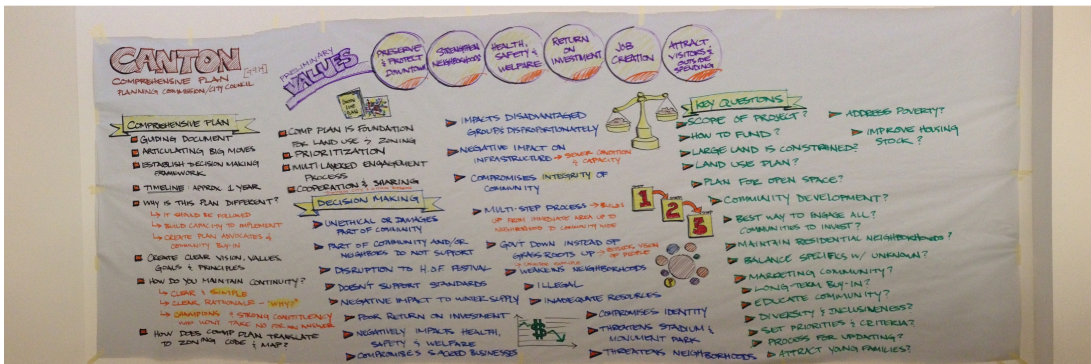 CANTON
COMPREHENSIVE PLAN
PLANNING COMMISSION/CITY COUNCIL
PRELIMINARY
VALUES
PRESERVE
& PROTECT
DOWNTOWN
STRENGTHEN
NEIGHBORHOODS
HEALTH,
SAFETY &
WELFARE
RETURN
ON
INVESTMENT
JOB
CREATION
ATTRACT
VISITORS &
OUTSIDE
SPENDING
COMPREHENSIVE PLAN
GUIDING DOCUMENT
ARTICULATING BIG MOVES
ESTABLISH DECISION MAKING
FRAMEWORK
TIMELINE: APPROX. 1 YEAR
WHY IS THIS PLAN DIFFERENT?
IT SHOULD BE FOLLOWED
BUILD CAPACITY TO IMPLEMENT
CREATE PLAN ADVOCATES &
COMMUNITY BUY-IN
CREATE CLEAR VISION, VALUES,
GOALS & PRINCIPLES
HOW DO YOU MAINTAIN CONTINUITY?
CLEAR & SIMPLE
CLEAR RATIONALE - "WHY?"
CHAMPIONS & STRONG CONSTITUENCY
WHO WON'T TAKE NO FOR AN ANSWER
HOW DOES COMP PLAN TRANSLATE
TO ZONING CODE & MAP?
COMP PLAN IS FOUNDATION
FOR LAND USE > ZONING
PRIORITIZATION
MULTI-LAYERED ENGAGEMENT
PROCESS
COOPERATION & SHARING
DECISION MAKING
UNETHICAL OR DAMAGES
PART OF COMMUNITY
PART OF COMMUNITY AND/OR
NEIGHBORS DO NOT SUPPORT
DISRUPTION TO H.O.F. FESTIVAL
DOESN'T SUPPORT STANDARDS
NEGATIVE IMPACT TO WATER SUPPLY
POOR RETURN ON INVESTMENT
NEGATIVELY IMPACTS HEALTH,
SAFETY & WELFARE
COMPROMISES SACRED BUSINESSES
IMPACTS DISADVANTAGED
GROUPS DISPROPORTIONATELY
NEGATIVE IMPACT ON
INFRASTRUCTURE → SEWER CONDITION
& CAPACITY
COMPROMISES INTEGRITY OF
COMMUNITY
MULTI-STEP PROCESS → BUILDS
UP FROM IMMEDIATE AREA UP TO
NEIGHBORHOOD TO COMMUNITY WIDE
GOV'T DOWN INSTEAD OF
GRASS ROOTS UP → REFLECTS VISION
OF PEOPLE
WEAKENS NEIGHBORHOODS
ILLEGAL
INADEQUATE RESOURCES
COMPROMISES IDENTITY
THREATENS STADIUM &
MONUMENT PARK
THREATENS NEIGHBORHOODS
1
2
3
$
KEY QUESTIONS
SCOPE OF PROJECT?
HOW TO FUND?
LARGE LAND IS CONSTRAINED?
LAND USE PLAN?
PLAN FOR OPEN SPACE?
COMMUNITY DEVELOPMENT?
BEST WAY TO ENGAGE ALL?
COMMUNITIES TO INVEST?
MAINTAIN RESIDENTIAL NEIGHBORHOODS?
BALANCE SPECIFICS W/ UNKNOWN?
MARKETING COMMUNITY?
LONG-TERM BUY-IN?
EDUCATE COMMUNITY?
DIVERSITY & INCLUSIVENESS?
SET PRIORITIES & CRITERIA?
PROCESS FOR UPDATING?
ATTRACT YOUNG FAMILIES?
ADDRESS POVERTY?
IMPROVE HOUSING
STOCK?